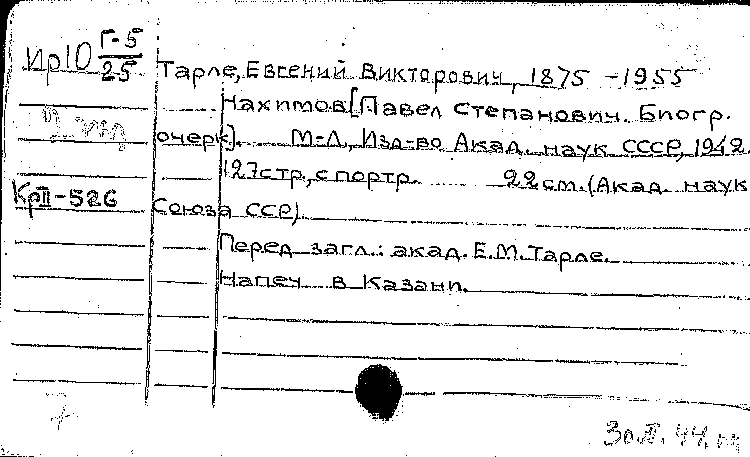 Ир10 Г-5
25
Тарле, Евгений Викторович, 1875 -1955
Нахимов [Павел Степанович. Биогр.
очерк]. М-Л., Изд-во Акад. наук СССР, 1942.
127 стр., с портр. 22 см. (Акад. наук
КрII-526
Союза ССР)
Перед загл.: акад. Е.М. Тарле.
Напеч в Казани.
7
30.II.44.